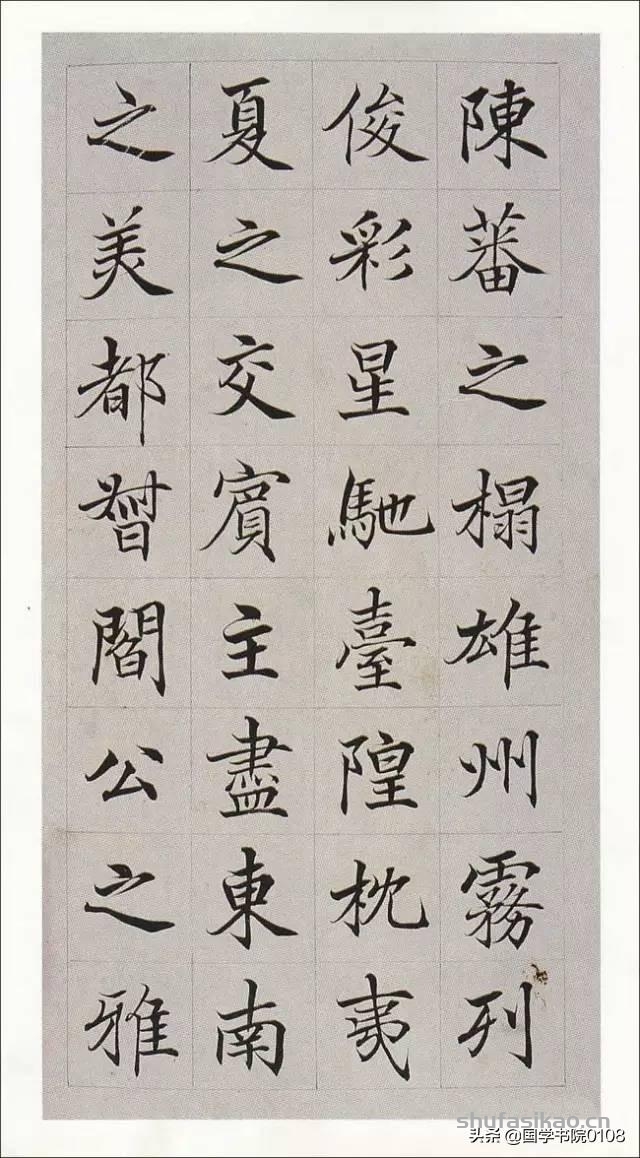 陳蕃之榻雄州霧列
俊彩星馳臺隍枕夷
夏之交賓主盡東南
之美都督閻公之雅
shufasikao.cn
头条 @国学书院0108